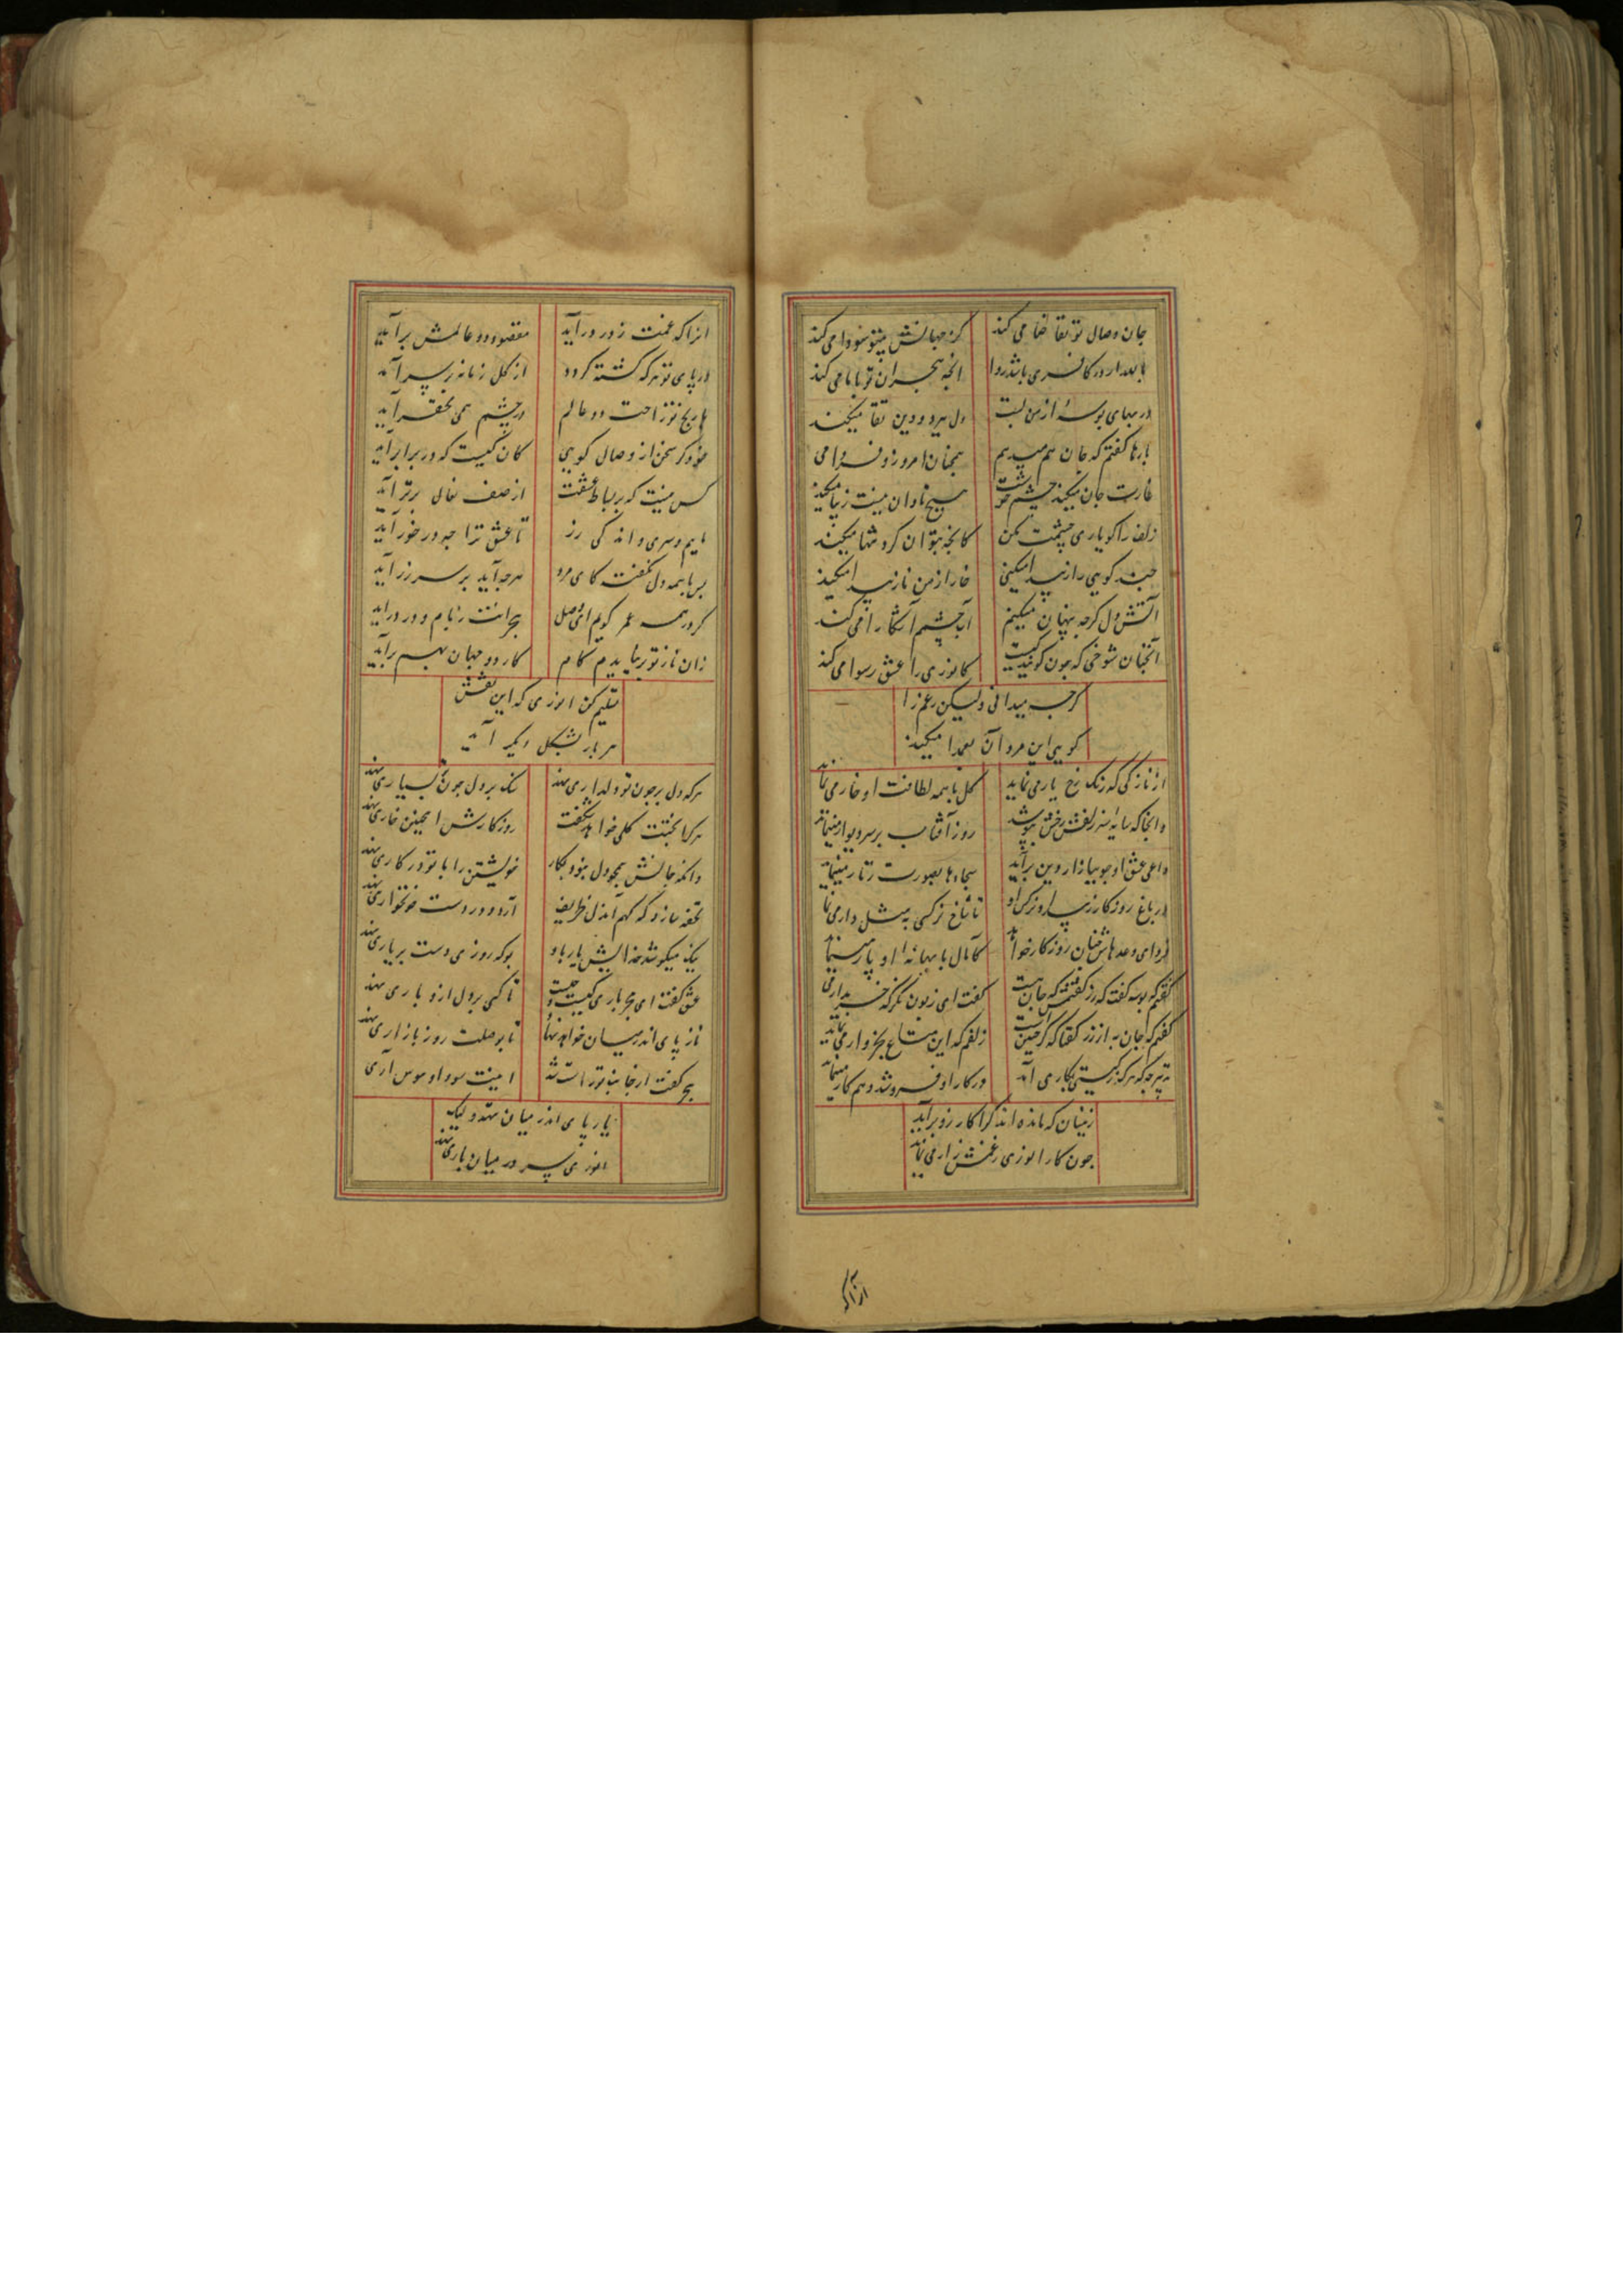 جان وصال تو تقاضا می کند کز جهانش بیتو سودا می کند
بالله ار در کافری باشد روا آنچه هجران تو با ما می کند
در بهای بوسهٔ از من لبت دل ببرد و دین تقا میکند
بارها گفتم که جان هم میدهم همچنان امروز و فردا می
غارت جان میکند چشم خوشت هیچ تاوان نیست زیبا میکند
زلف را گو یاری چشمت مکن کانچه بتوان کرد تنها میکند
چند گویی راز پیدا میکنی راز من ناز پیدا میکند
آتش دل گرچه پنهان میکنم آب چشم آشکارا می کند
آنچنان شوخی که چون گویند کیست کانوری را عشق رسوا می کند
گرچه میدانی ولیکن رغم را
گویی این مرد آن تعمدا میکند
از نازکی که رنگ رخ یار می نماید گل با همه لطافت او خار می نماید
وانجا که سایه سر زلفش رخش بپوشد روز آفتاب بر سر دیوار مینماید
داعی عشق او چو ببازار دین برآید سجاده‌ها بصورت زنار مینماید
در باغ روزگار ز بیداد نرگس او تا شاخ نرگسی به مثل دار می نماید
فردای وعدهاش چنان روزگار خواهد کامسال با بهانهٔ او پار مینماید
گفتم که بوسه گفت که زر گفتمش که جان هست گفت ای زبون نگر که خریدار می
گفتم که جان به از زر گفتا که گر چنین است زلفم که این متاع بخروار می نماید
به هر چه که هر که بزیستی بکار می آید در کار او فروشد و هم کار مینماید
زینسان که مانده‌اند کرا کار زو برآید
چون کار انوری ز غمش زار می نماید
ازاکه
انرا که غمت ز در درآید مقصود دو عالمش برآید
در پای تو هر که کشته گردد از کل زمانه بر سر آید
با رنج تو راحت دو عالم در چشم همی محقر آید
خود گر سخن از وصال گویی کان کیست که در برابر آید
کس نیست که بر بساط عشقت از صف نعال برتر آید
ماییم و سری و اندکی زر تا عشق ترا چه در خور آید
بس با همه دل نگفت کای مرد هرچه آید بر سر زر آید
گر در همه عمر گویم ای وصل هجرانت ز بام و در درآید
زان ناز تو برنیایدم کام کار دو جهان بهم برآید
تسلیم کن انوری که این نقش
هر بار بشکل دیگر آید
هر که دل بر چون تو دلداری نهد سنگ بر دل چون تو بسیاری نهد
هر کرا بختت گلی خواهد شکفت روزگارش اینچنین خاری نهد
وانکه جانش همچو دل نبود بکار خویشتن را با تو در کاری نهد
تحفه سازد گه گهم آن دل ظریف آرد و در دست خونخواری نهد
نیک میکوشد خدایش یار باد بوکه روزی دست بر یاری نهد
عشق گفت ای هجر باری کیست و چیست تا کسی بر دل ازو باری نهد
ناز پای اندر میان خواهد نهاد تا بوصلت روز بازاری نهد
هجر گفت از جا نباید راست شد اینت سودا و هوس آری
یار پای اندر میان ننهد ولیک
انوری سر در میان باری نهد